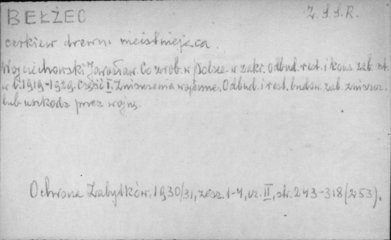 BEŁŻEC
Z.S.S.R.
cerkiew drewn. nieistniejąca
Wojciechowski Jarosław. Co zrob. w Polsce w zakr. odbud. rest. i kons. zab. szt.
w l. 1919-1929. Część I. Zniszczenia wojenne. Odbud. i rest. budow. zab. zniszcz.
lub uszkodz. przez wojnę.
Ochrona Zabytków. 1930/31, zesz. 1-4, cz. II, str. 243-318 (253).